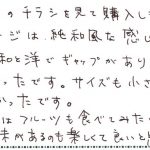 のチラシを見て購入し
ージは、純和風な感じ
和と洋でギャップがあり
ったです。サイズも小さ
かったです。
はフルーツも食べてみた
味があるのも楽しくて良いと